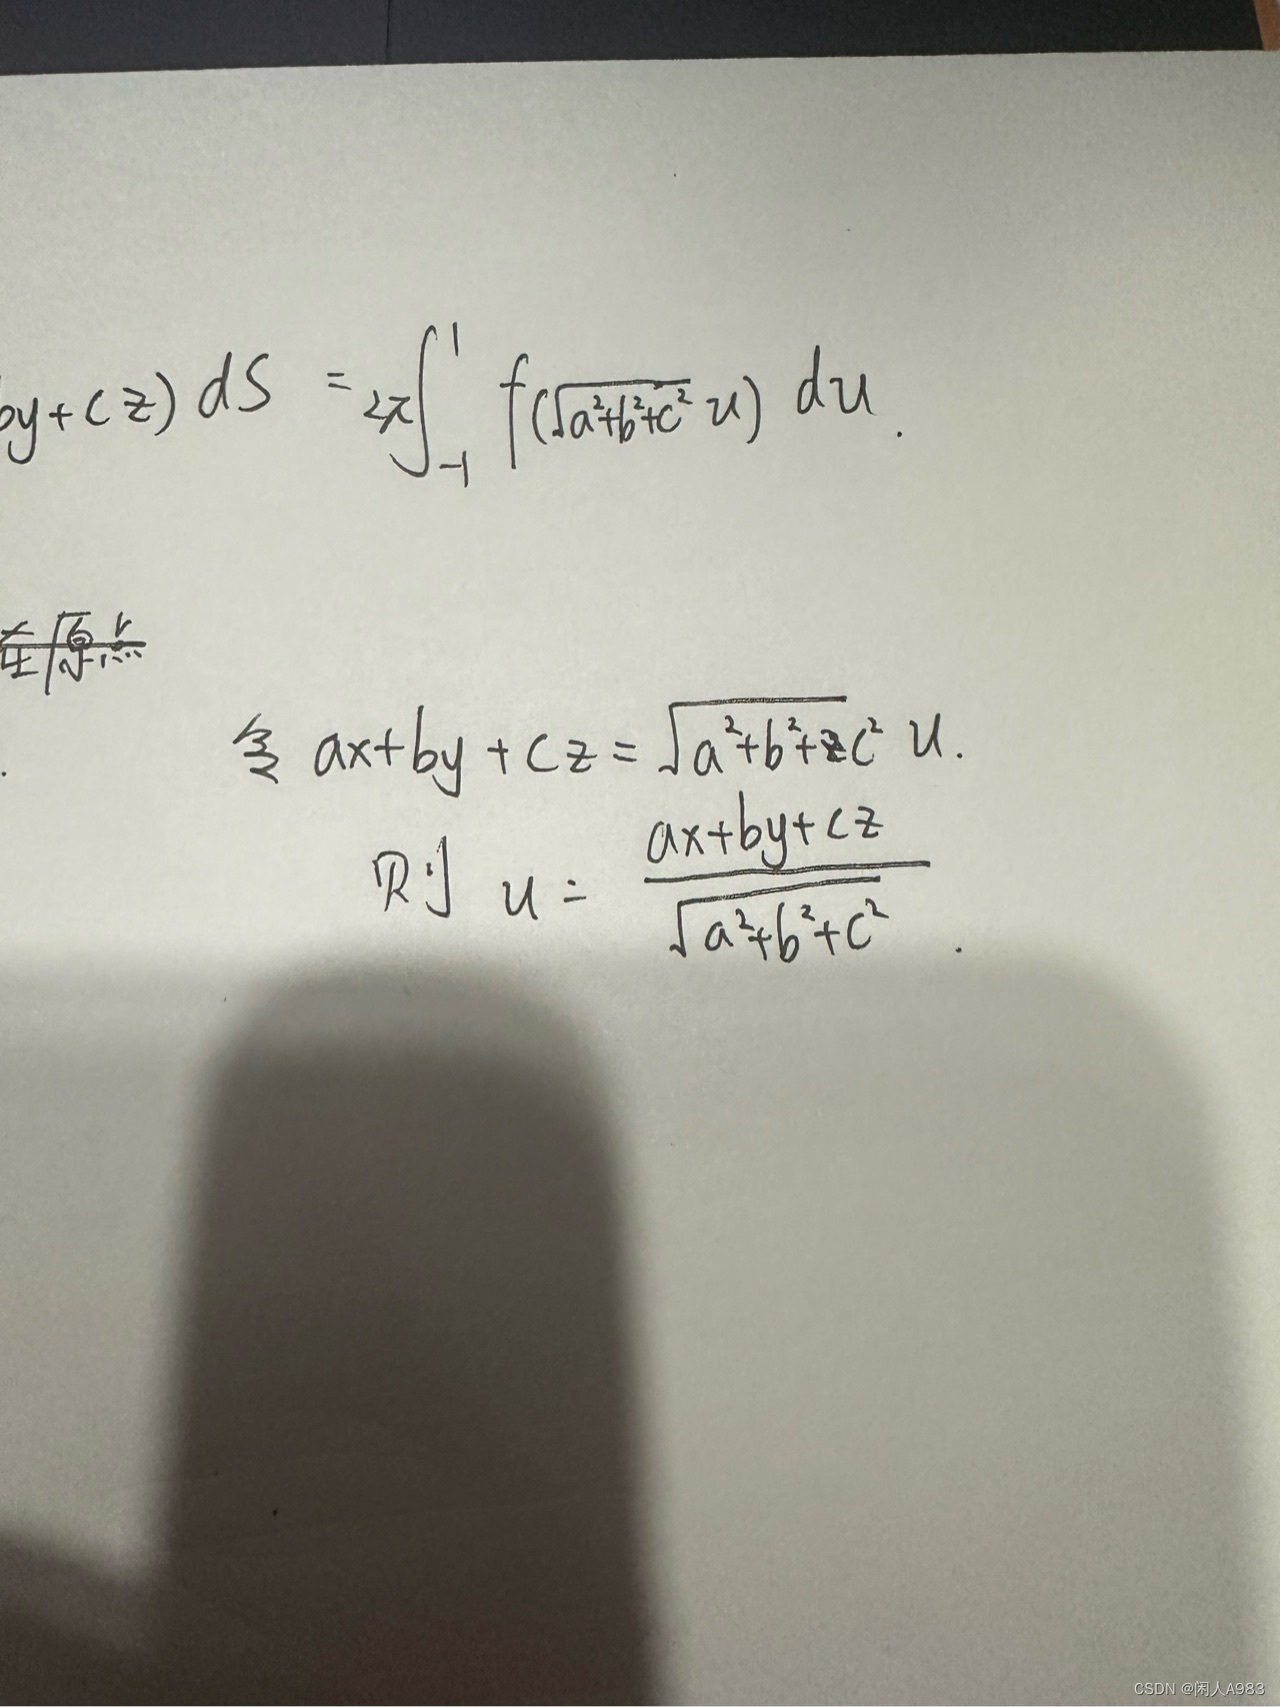 by+cz) dS = 2π∫_{-1}^{1} f(√(a²+b²+c²) u) du.
在原点
令 ax+by+cz = √(a²+b²+c²) u.
则 u = (ax+by+cz)/√(a²+b²+c²) .
CSDN @闲人A983